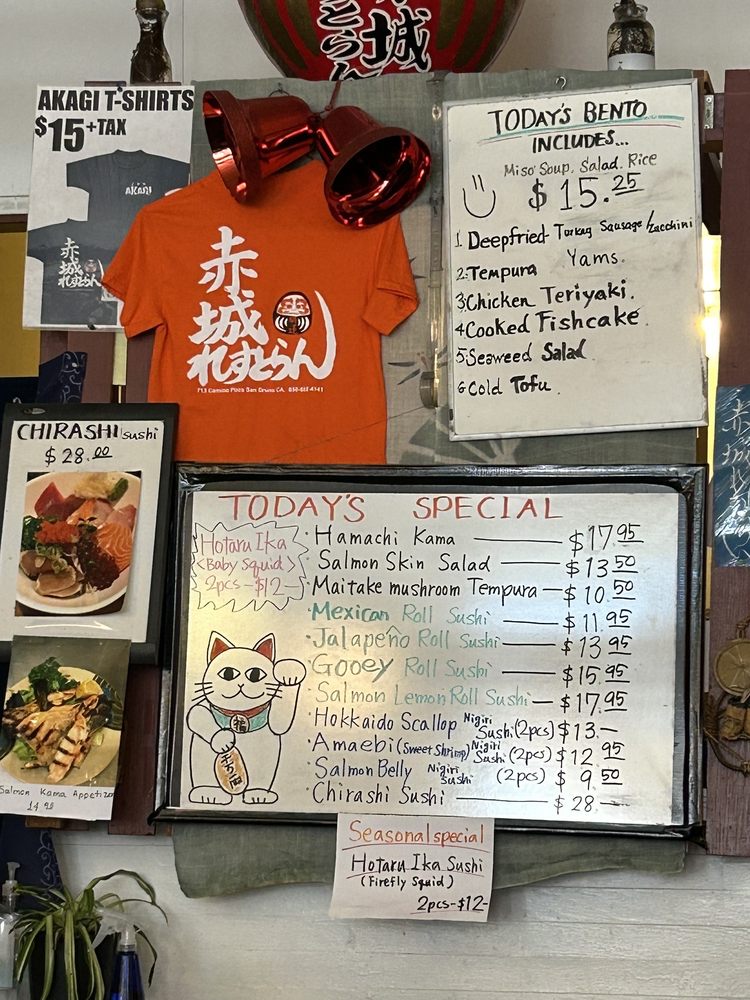 城
とらん
AKAGI T-SHIRTS
$15+TAX
AKAGI
赤
城
れすとらん
赤
城
れすとらん
TODAY'S BENTO
INCLUDES...
Miso Soup, Salad, Rice
$15.25
1. Deepfried Turkey Sausage/Zacchini
Yams.
2. Tempura
3. Chicken Teriyaki.
4. Cooked Fishcake
5. Seaweed Salad
6. Cold Tofu
CHIRASHI sushi
$28.00
Salmon Kama Appetizer
14.95
TODAY'S SPECIAL
Hotaru Ika
<Baby Squid>
2pcs-$12-
・Hamachi Kama — $17.95
・Salmon Skin Salad — $13.50
・Maitake mushroom Tempura — $10.50
・Mexican Roll Sushi — $11.95
・Jalapeño Roll Sushi — $13.95
・Gooey Roll Sushi — $15.95
・Salmon Lemon Roll Sushi — $17.95
・Hokkaido Scallop Nigiri Sushi (2pcs) $13.—
・Amaebi (Sweet Shrimp) Nigiri Sushi (2pcs) $12.95
・Salmon Belly Nigiri Sushi (2pcs) $9.50
・Chirashi Sushi — $28.—
福
Seasonal special
Hotaru Ika Sushi
(Firefly Squid)
2pcs-$12-
赤